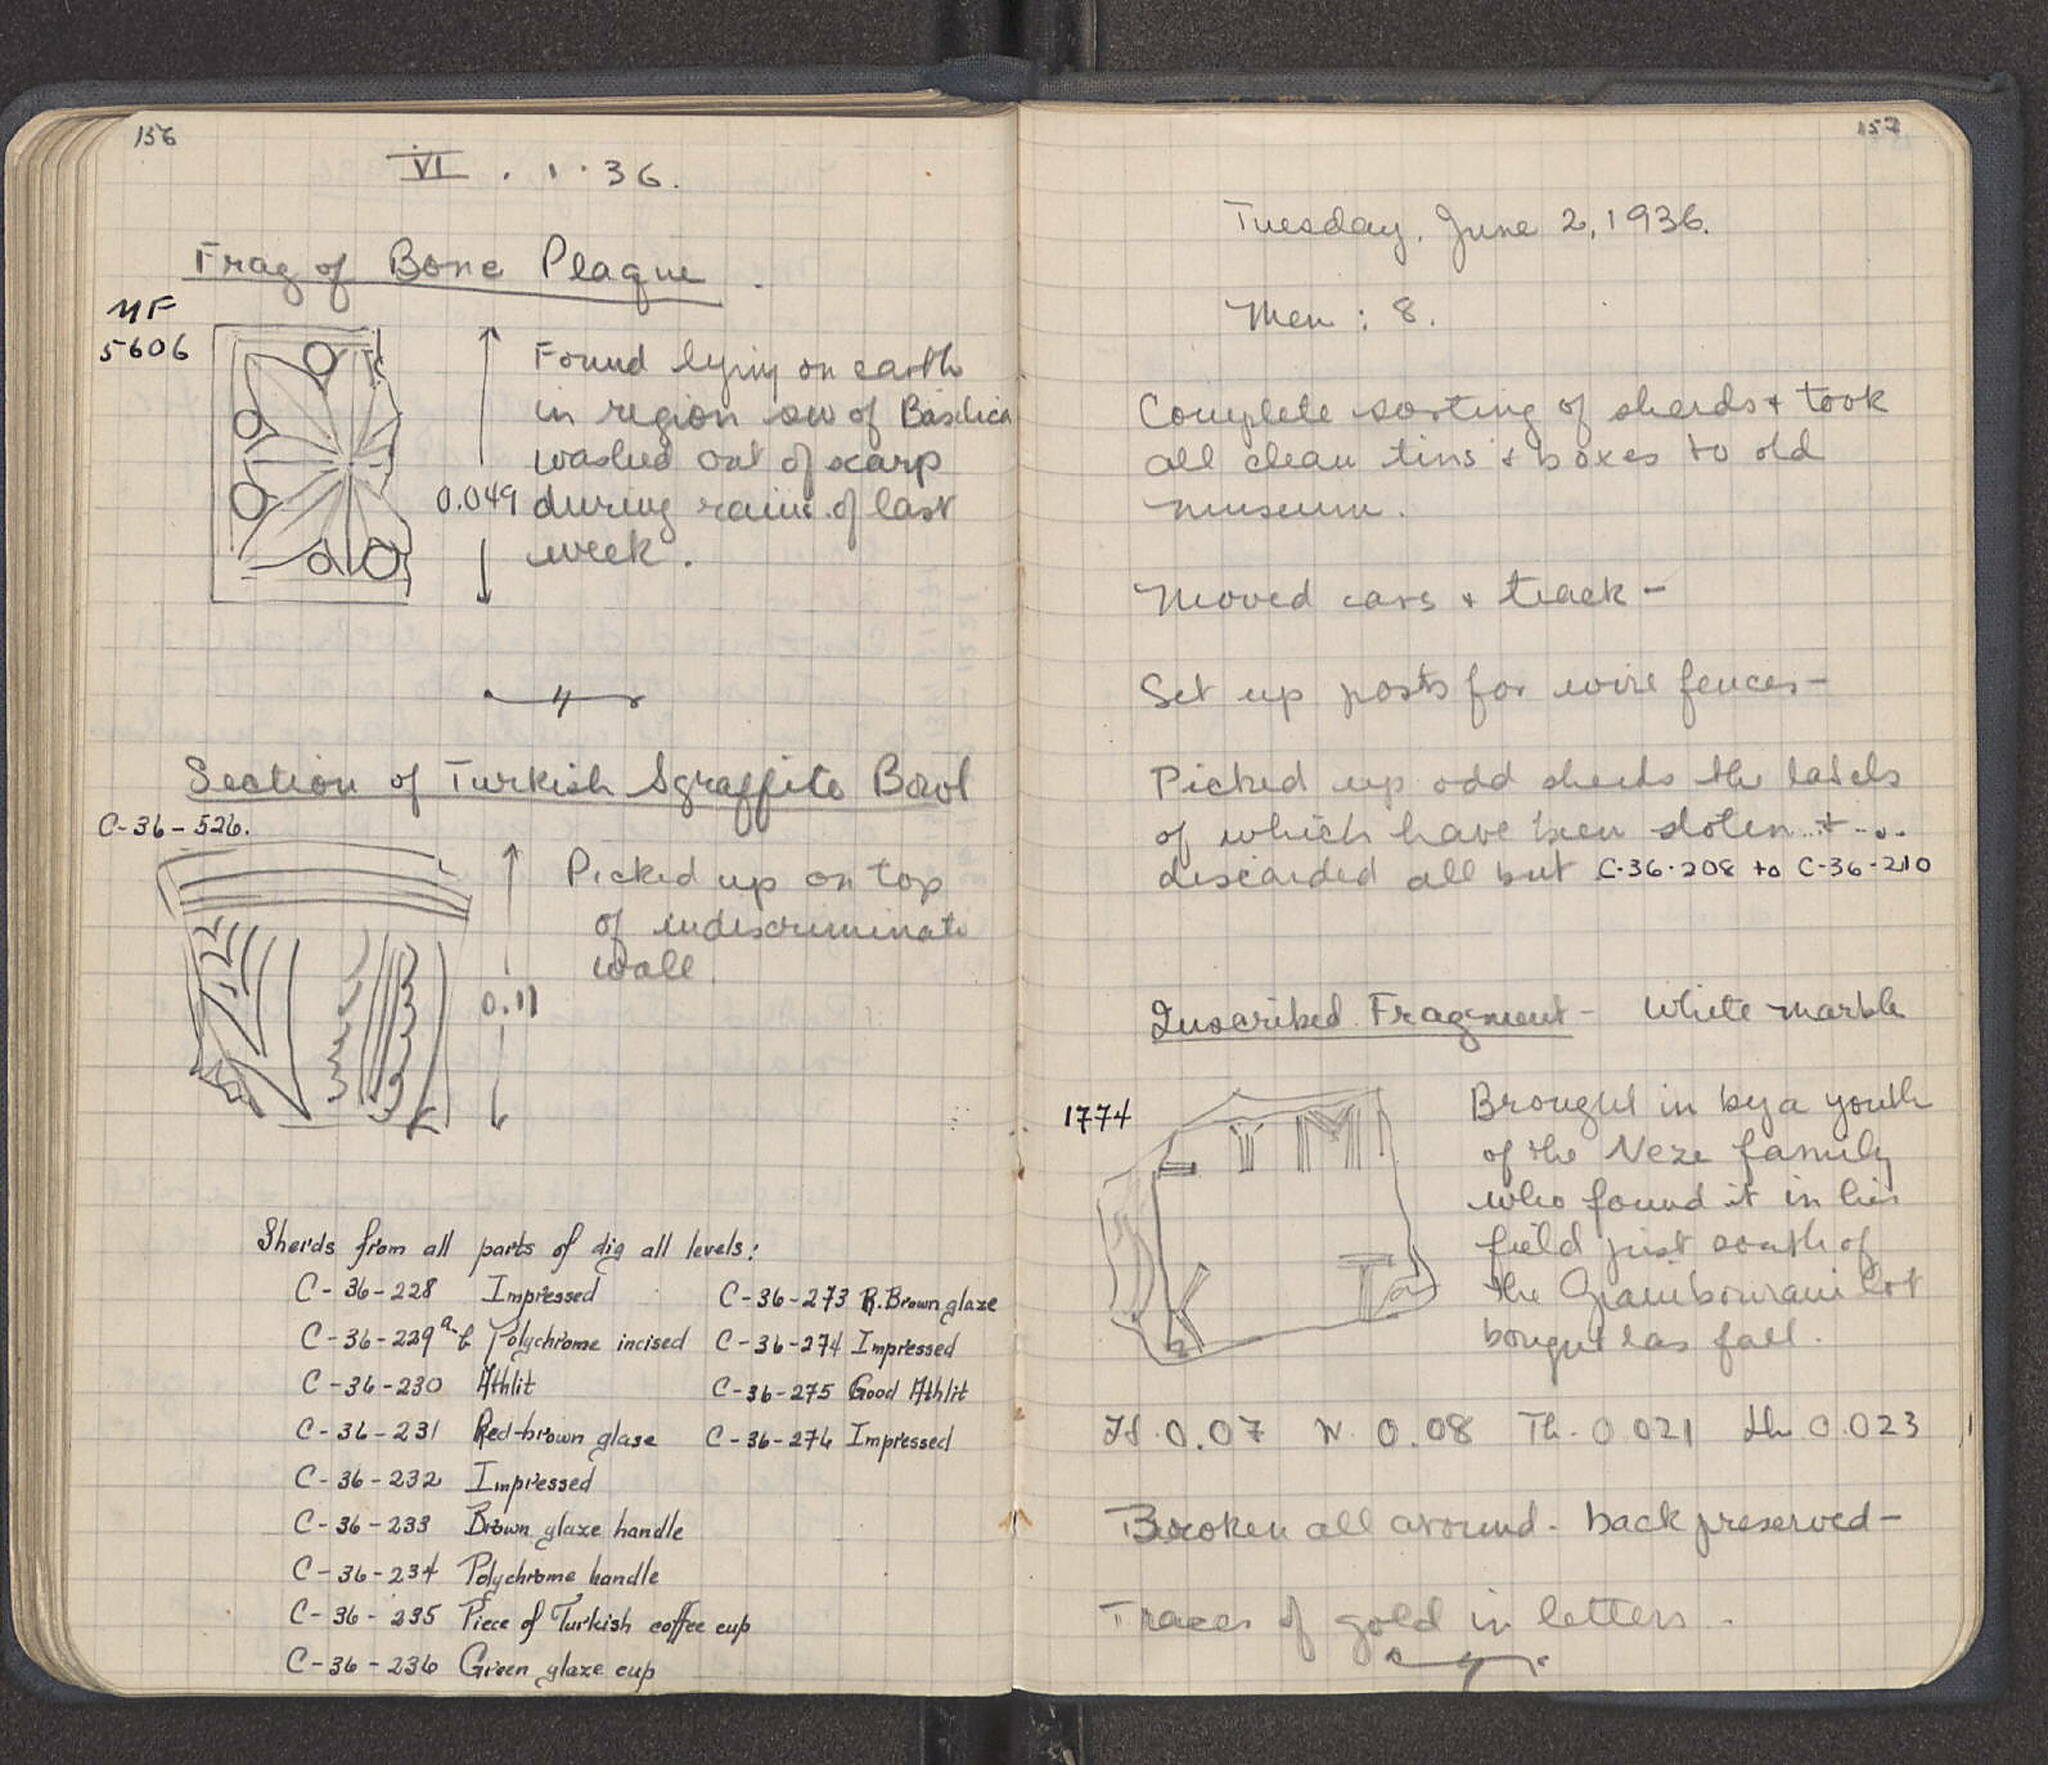 156
VI . 1 . 36.
Frag of Bone Plaque
MF
5606
Found lying on earth
in region sw of Basilica
washed out of scarp
0.049
during rains of last
week.
Section of Turkish Sgraffito Bowl
C-36-526.
Picked up on top
of indiscriminate
wall
0.11
Sherds from all parts of dig all levels:
C-36-228 Impressed
C-36-229 a-b Polychrome incised
C-36-230 Athlit
C-36-231 Red-brown glase
C-36-232 Impressed
C-36-233 Brown glaze handle
C-36-234 Polychrome handle
C-36-235 Piece of Turkish coffee cup
C-36-236 Green glaze cup
C-36-273 R. Brown glaze
C-36-274 Impressed
C-36-275 Good Athlit
C-36-276 Impressed
157
Tuesday. June 2, 1936.
Men : 8.
Complete sorting of sherds + took
all clean tins + boxes to old
museum.
Moved cars + track -
Set up posts for wire fences -
Picked up odd sherds the labels
of which have been stolen + ...
discarded all but C-36-208 to C-36-210
Inscribed Fragment - White marble
1774
Brought in by a youth
of the Neze family
who found it in his
field just south of
the Giambourani lot
bought las fall.
H. 0.07 W. 0.08 Th. 0.021 Lh. 0.023
Broken all around - back preserved -
Traces of gold in letters -